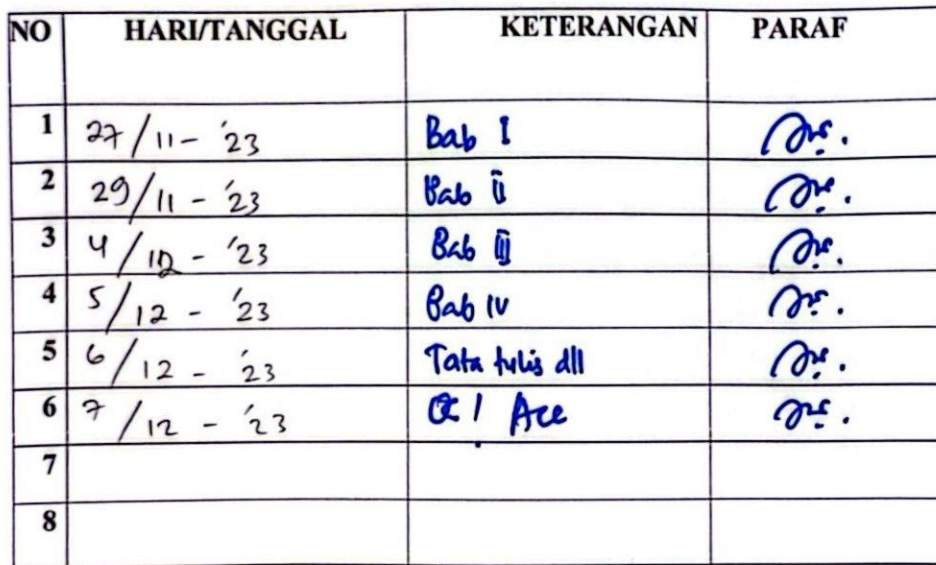 NO HARI/TANGGAL KETERANGAN PARAF
1 27/11 - '23 Bab I
2 29/11 - '23 Bab II
3 4/12 - '23 Bab III
4 5/12 - '23 Bab IV
5 6/12 - '23 Tata tulis dll
6 7/12 - '23 Acc
7
8